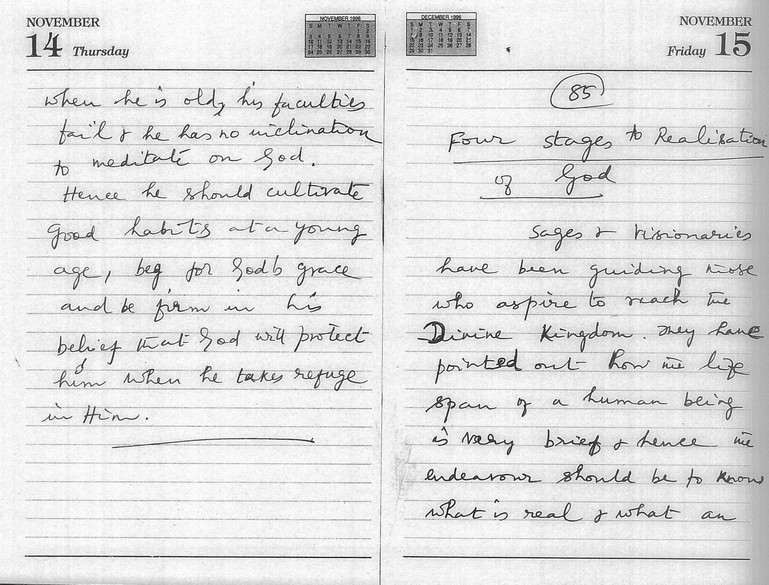 NOVEMBER
14 Thursday
NOVEMBER 1996
when he is old, his faculties
fail & he has no inclination
to meditate on God.
Hence he should cultivate
good habits at a young
age, beg for God's grace
and be firm in his
belief that God will protect
him when he takes refuge
in Him.
DECEMBER 1996
NOVEMBER
Friday 15
85
Four stages to Realisation
of God
Sages & Visionaries
have been guiding those
who aspire to reach the
Divine Kingdom. They have
pointed out how the life
span of a human being
is very brief & hence the
endeavour should be to know
what is real & what an